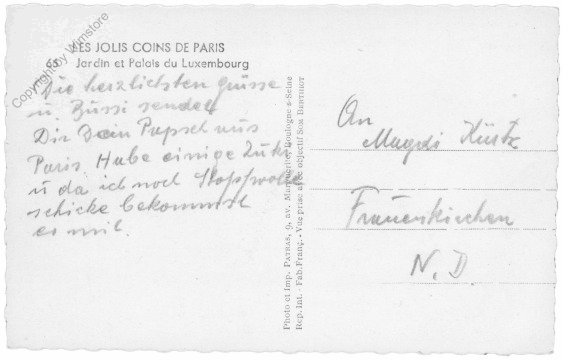 Copyright by Wimstore
LES JOLIS COINS DE PARIS
65 Jardin et Palais du Luxembourg
Die herzlichsten grüsse
u. Bussi sendet
Dir Dein Pupsch aus
Paris. Habe einige
u da ich noch Stopfwolle
schicke bekommst
es mit.
Photo et Imp. PATRAS, 9, av. Marguerite, Boulogne-s-Seine
Rep. Int. - Fab. Franç. - Vue prise avec objectif SOM BERTHIOT
An
Magdi
Frauenkirchen
N. D